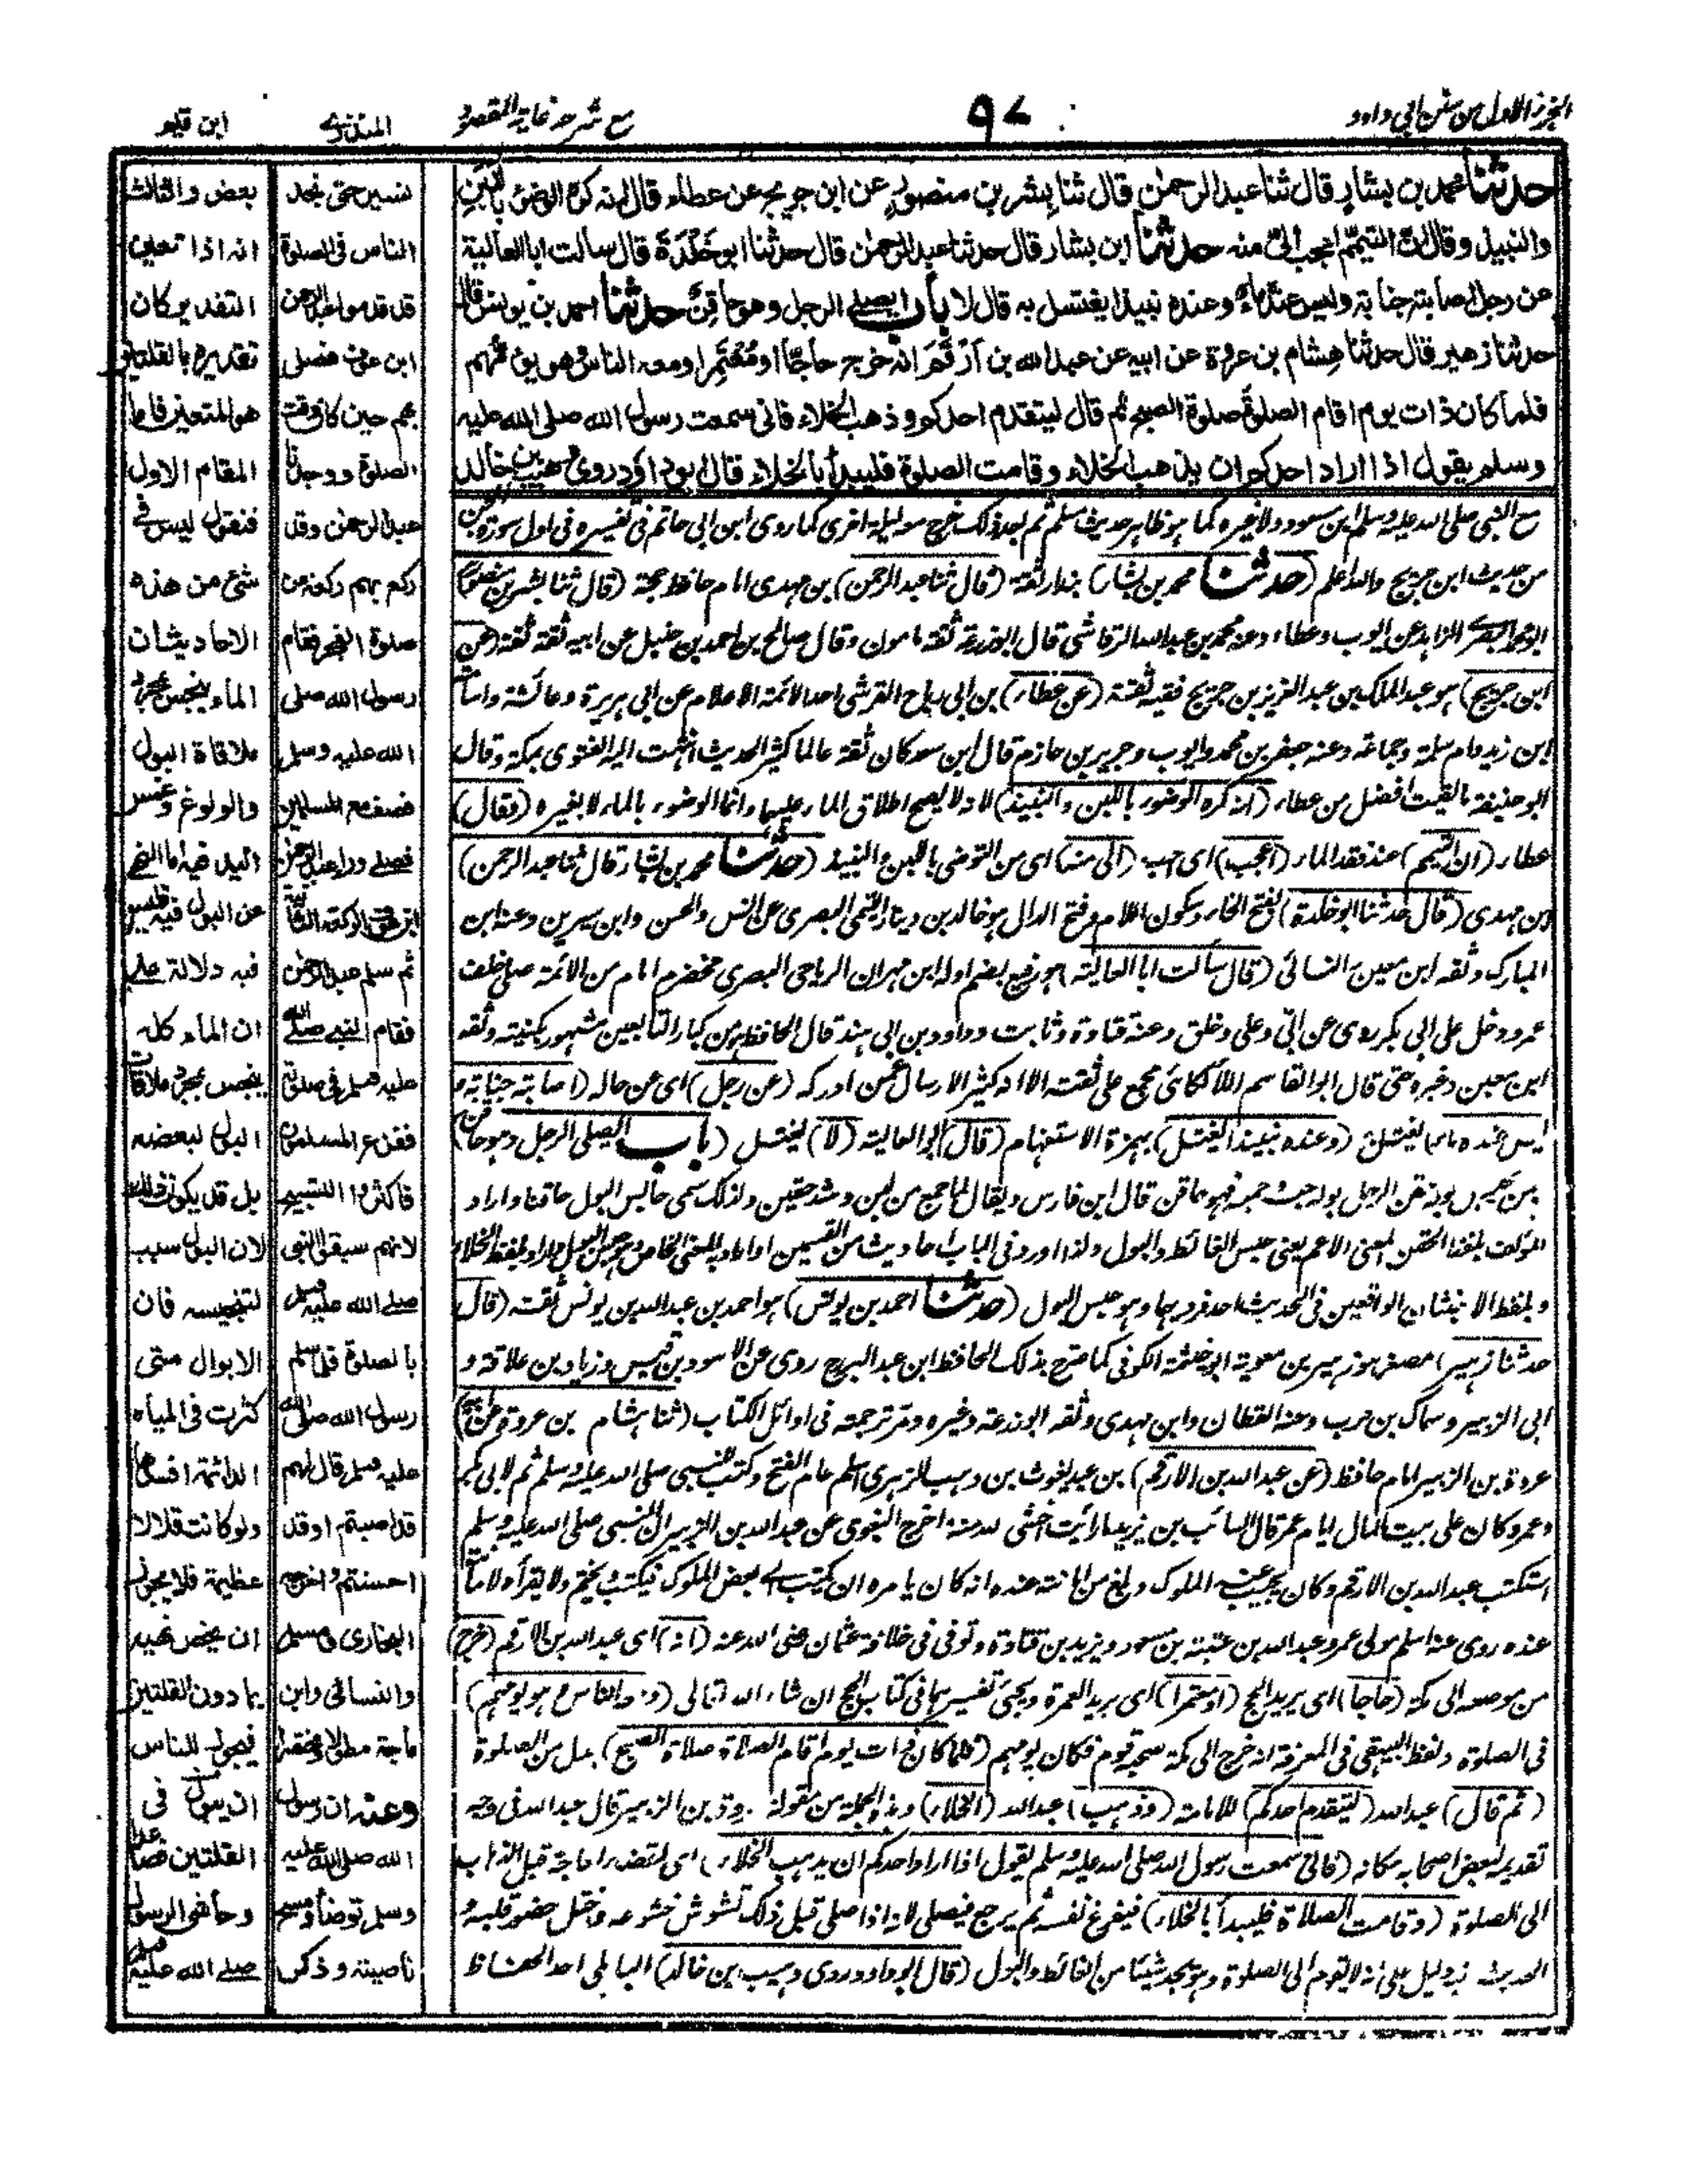 الجزء الاول من سنن ابي داود
٩٧
مع شرحه غاية المقصود
المنذري
ابن قيم
حدثنا محمد بن بشار قال ثنا عبد الرحمن قال ثنا بشر بن منصور عن ابن جريج عن عطاء قال انه كره الوضوء باللبن
والنبيذ وقال ان التيمم اعجب الي منه حدثنا ابن بشار قال حدثنا عبد الرحمن قال حدثنا ابو خلدة قال سالت ابا العالية
عن رجل اصابته جنابة وليس عنده ماء وعنده نبيذ ايغتسل به قال لا باب ايصلي الرجل وهو حاقن حدثنا احمد بن يونس قال
حدثنا زهير قال حدثنا هشام بن عروة عن ابيه عن عبد الله بن ارقم انه خرج حاجا او معتمرا ومعه الناس وهو يؤمهم
فلما كان ذات يوم اقام الصلوة صلوة الصبح ثم قال ليتقدم احدكم وذهب الخلاء فاني سمعت رسول الله صلى الله عليه
وسلم يقول اذا اراد احدكم ان يذهب الخلاء وقامت الصلوة فليبدأ بالخلاء قال ابو داود روى وهيب بن خالد
مع النبي صلى الله عليه وسلم ابن مسعود ولا غيره كما هو ظاهر حديث مسلم ثم بعد ذلك خرج معه ليلة اخرى كما روى ابن ابي حاتم في تفسيره في اول سورة الجن
من حديث ابن جريج والله اعلم (حدثنا محمد بن بشار) بندار ثقة (قال ثنا عبد الرحمن) بن مهدي امام حافظ حجة (قال ثنا بشر بن منصور)
الزاهد عن ايوب وعطاء وعنه محمد بن عبد الله الرقاشي قال ابو زرعة ثقة مامون وقال صالح بن احمد بن حنبل عن ابيه ثقة ثقة (عن
ابن جريج) هو عبد الملك بن عبد العزيز بن جريج فقيه ثقة (عن عطاء) بن ابي رباح القرشي احد الائمة الاعلام عن ابي هريرة وعائشة واسامة
ابن زيد وام سلمة وجماعة وعنه جعفر بن محمد وايوب وجرير بن حازم قال ابن سعد كان ثقة عالما كثير الحديث انتهت اليه الفتوى بمكة وقال
ابو حنيفة ما لقيت افضل من عطاء (انه كره الوضوء باللبن والنبيذ) لانه لا يصح اطلاق الماء عليهما وانما الوضوء بالماء لا بغيره (وقال)
عطاء (ان التيمم) عند فقد الماء (اعجب) اي احب (الي منه) اي من التوضي باللبن والنبيذ (حدثنا محمد بن بشار قال ثنا عبد الرحمن)
بن مهدي (قال حدثنا ابو خلدة) بفتح الخاء وسكون اللام وفتح الدال هو خالد بن دينار التميمي البصري عن انس والحسن وابن سيرين وعنه ابن
المبارك وثقه ابن معين والنسائي (قال سألت ابا العالية) هو رفيع بضم اوله ابن مهران الرياحي البصري مخضرم امام من الائمة صلى خلف
عمر ودخل على ابي بكر روى عن ابي وعلي وخلق وعنه قتادة وثابت وداود بن ابي هند قال الحافظ هو من كبار التابعين مشهور بكنيته وثقه
ابن معين وغيره حتى قال ابو القاسم اللالكائي مجمع على ثقته الا انه كثير الارسال عمن ادركه (عن رجل) اي عن حاله (اصابته جنابة و
ليس عنده ماء) ليغتسل (وعنده نبيذ ايغتسل) بهمزة الاستفهام (قال) ابو العالية (لا) يغتسل (باب ايصلي الرجل وهو حاقن)
من يحبس بوله حقن الرجل بوله حبسه وجمعه فهو حاقن قال ابن فارس ويقال لما جمع من لبن وشد حقين ولذلك سمي حابس البول حاقنا واراد
المؤلف بلفظ الحقن المعنى الاعم يعني حبس الغائط والبول ولذا اورد في الباب احاديث من القسمين
وبلفظ الاخبثان الواقعين في الحديث احد فرديها وهو حبس البول (حدثنا احمد بن يونس) هو احمد بن عبد الله بن يونس ثقة (قال
حدثنا زهير) مصغر هو زهير بن معوية ابو خيثمة الكوفي كما صرح بذلك الحافظ ابن عبد البر روى عن الاسود بن قيس وزياد بن علاقة و
ابي الزبير وسماك بن حرب وعنه القطان وابن مهدي وثقه ابو زرعة وغيره ومر ترجمته في اوائل الكتاب (ثنا هشام بن عروة عن ابيه)
عروة بن الزبير امام حافظ (عن عبد الله بن الارقم) بن عبد يغوث بن وهب الزهري اسلم عام الفتح وكتب للنبي صلى الله عليه وسلم ثم لابي بكر
وعمر وكان على بيت المال ايام عمر قال السائب بن يزيد ما رأيت اخشى لله منه اخرج البغوي عن عبد الله بن الزبير ان النبي صلى الله عليه وسلم
استكتب عبد الله بن الارقم وكان يجيب عنه الملوك وبلغ من امانته عنده انه كان يامره ان يكتب الى بعض الملوك فيكتب ويختم ولا يقرأه لامانته
عنده روى عنه اسلم مولى عمر وعبد الله بن عتبة بن مسعود ويزيد بن قتادة وتوفي في خلافة عثمان رضي الله عنه (انه) اي عبد الله بن الارقم (خرج)
من موضعه الى مكة (حاجا) اي يريد الحج (او معتمرا) اي يريد العمرة ويجئ تفسيرهما في كتاب الحج ان شاء الله تعالى (ومعه الناس وهو يومهم)
في الصلوة ولفظ البيهقي في المعرفة انه خرج الى مكة صحبه قوم فكان يومهم (فلما كان ذات يوم اقام الصلاة صلاة الصبح) بدل من الصلوة
(ثم قال) عبد الله (ليتقدم احدكم) للامامة (وذهب) عبد الله (الخلاء) وهذه الجملة من مقولة عروة بن الزبير قال عبد الله في وجه
تقديمه لبعض اصحابه مكانه (فاني سمعت رسول الله صلى الله عليه وسلم يقول اذا اراد احدكم ان يذهب الخلاء) اي لقضاء حاجة قبل الذهاب
الى الصلوة (وقامت الصلاة فليبدأ بالخلاء) فيفرغ نفسه ثم يرجع فيصلي لانه اذا صلى قبل ذلك تشوش خشوعه واختل حضور قلبه و
الحديث فيه دليل على انه لا يقوم الى الصلوة وهو يجد شيئا من الغائط والبول (قال ابو داود روى وهيب بن خالد) الباهلي احد الحفاظ
نسير حتى نجد
الناس في الصلوة
قد قدموا عبد الرحمن
ابن عوف فصلى
بهم حين كان وقت
الصلوة ووجدنا
عبد الرحمن وقد
ركع بهم ركعة من
صلوة الفجر فقام
رسول الله صلى
الله عليه وسلم
فصف مع المسلمين
فصلى وراء عبد الرحمن
ابن عوف الركعة الثانية
ثم سلم عبد الرحمن
فقام النبي صلى الله
عليه وسلم في صلوته
ففزع المسلمون
فاكثروا التسبيح
لانهم سبقوا النبي
صلى الله عليه وسلم
بالصلوة فلما سلم
رسول الله صلى الله
عليه وسلم قال لهم
قد اصبتم او قد
احسنتم واخرجه
البخاري ومسلم
والنسائي وابن
ماجة مطولا ومختصرا
وعنه ان رسول
الله صلى الله عليه
وسلم توضأ ومسح
ناصيته وذكر
بعض والثالث
انه اذا تعين
التقدير كان
تقديره بالقلتين
هو المتعين فاما
المقام الاول
فنقول ليس في
شئ من هذه
الاحاديث ان
الماء ينجس بمجرد
ملاقاة البول
والولوغ وغمس
اليد فيه اما النهي
عن البول فيه فليس
فيه دلالة على
ان الماء كله
ينجس بمجرد ملاقاة
البول لبعضه
بل قد يكون ذلك
لان البول سبب
لتنجيسه فان
الابوال متى
كثرت في المياه
الدائمة افسدتها
ولو كانت قلالا
عظيمة فلا يجوز
ان يخص نهيه
بما دون القلتين
فيجوز للناس
ان يبولوا في
القلتين فصاعدا
وحاشى الرسول
صلى الله عليه وسلم